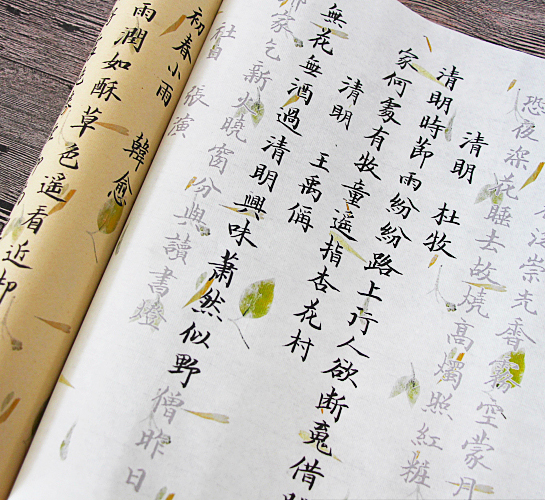 泛崇光香霧空蒙月
恐夜深花睡去故燒高燭照紅粧
清明 杜牧
清明時節雨紛紛路上行人欲斷魂借
家何處有牧童遙指杏花村
清明 王禹偁
無花無酒過清明興味蕭然似野僧昨日
鄰家乞新火曉窗分與讀書燈
社日 張演
初春小雨 韓愈
雨潤如酥草色遙看近却